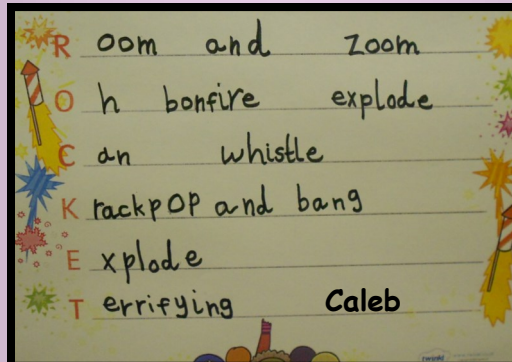 Room and zoom
Oh bonfire explode
Can whistle
KrackpOp and bang
Explode
Terrifying Caleb
twinkl